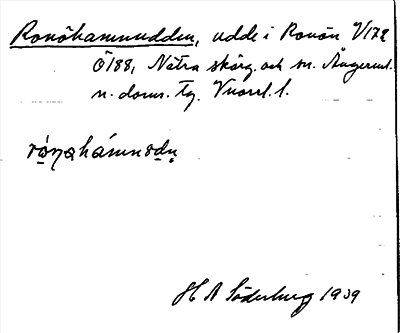 Ronöhamnudden, udde i Ronön V172
Ö188, Nätra skärg. och sn. Ångerml.
n. doms. tg. Vnorrl. l.
H A Söderburg 1939